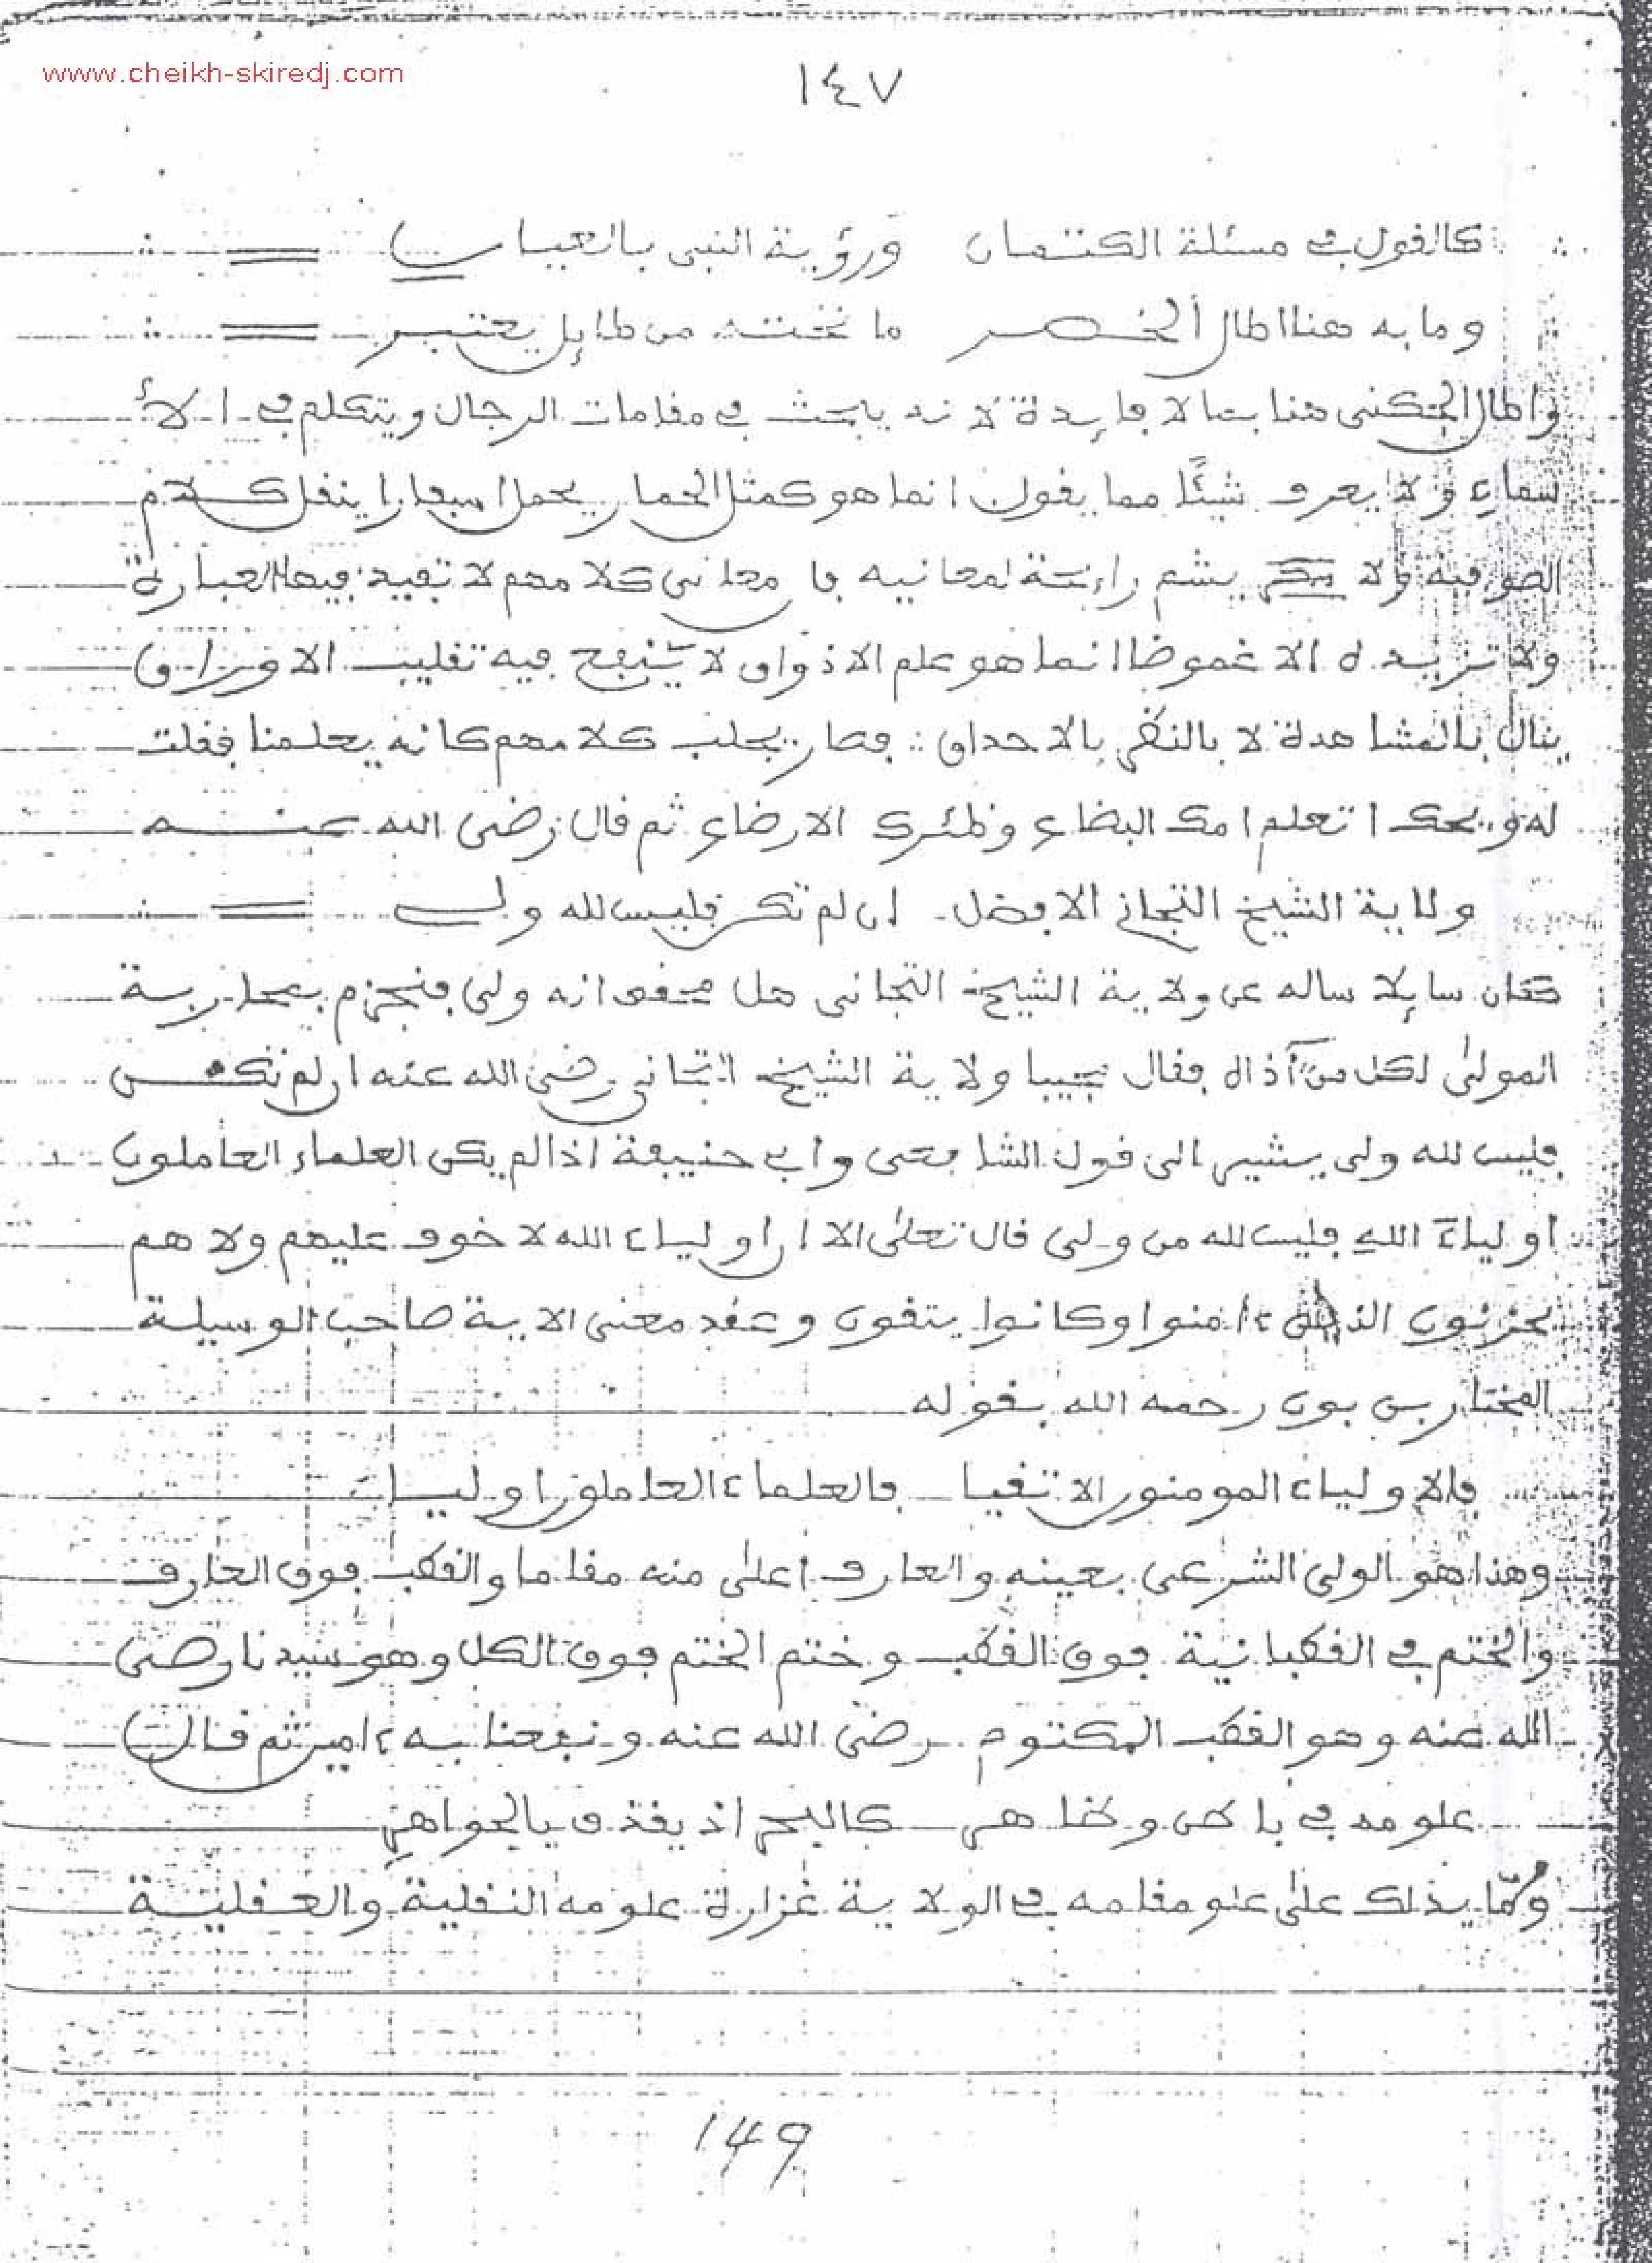 www.cheikh-skiredj.com
١٤٧
كالقول في مسئلة الكتمان ورؤية النبي بالعيان
وما به هنا اطال الخصر ما تحته من طايل يعتبر
واطال الجكني هنا بما لا فايدة لانه يبحث في مقامات الرجال ويتكلم في الأ
سماء ولا يعرف شيئًا مما يقول انما هو كمثل الحمار يحمل اسفارا ينقل كلام
الصوفية ولا يشم رائحة لمعانيه فا معاني كلامهم لا تفيد فيها العبارة
ولا تزيده الا غموضا انما هو علم الاذواق لا ينفع فيه تقليب الاوراق
ينال بالمشاهدة لا بالنظر بالاحداق فصار يجلب كلامهم كانه يعلمنا فقلت
له ويحك اتعلم امك البضاع وظئرك الارضاع ثم قال رضى الله عنه
ولاية الشيخ التجاني الافضل ان لم تكن فليس لله ولي
كان سايلا ساله عن ولاية الشيخ التجاني هل محقق انه ولي فنجزم بمحاربة
المولى لكل من آذاه فقال مجيبا ولاية الشيخ التجاني رضى الله عنه ان لم تكن
فليس لله ولي يشير الى قول الشافعي وابي حنيفة اذا لم يكن العلماء العاملون
اولياء الله فليس لله من ولي قال تعلى الا ان اولياء الله لا خوف عليهم ولا هم
يحزنون الذين ءامنوا وكانوا يتقون وعقد معنى الاية صاحب الوسيلة
المختار بن بون رحمه الله بقوله
فالاولياء المومنون الاتقيا فالعلماء العاملون اوليا
وهذا هو الولي الشرعي بعينه والعارف اعلى منه مقاما والقطب فوق العارف
والختم في القطبانية فوق القطب وختم الختم فوق الكل وهو سيدنا رضى
الله عنه وهو القطب المكتوم رضى الله عنه ونفعنا به ءامين ثم قال
علومه في باطن وظاهر كالبحر اذ يقذف بالجواهر
ومما يدلك على علو مقامه في الولاية غزارة علومه النقلية والعقلية
149